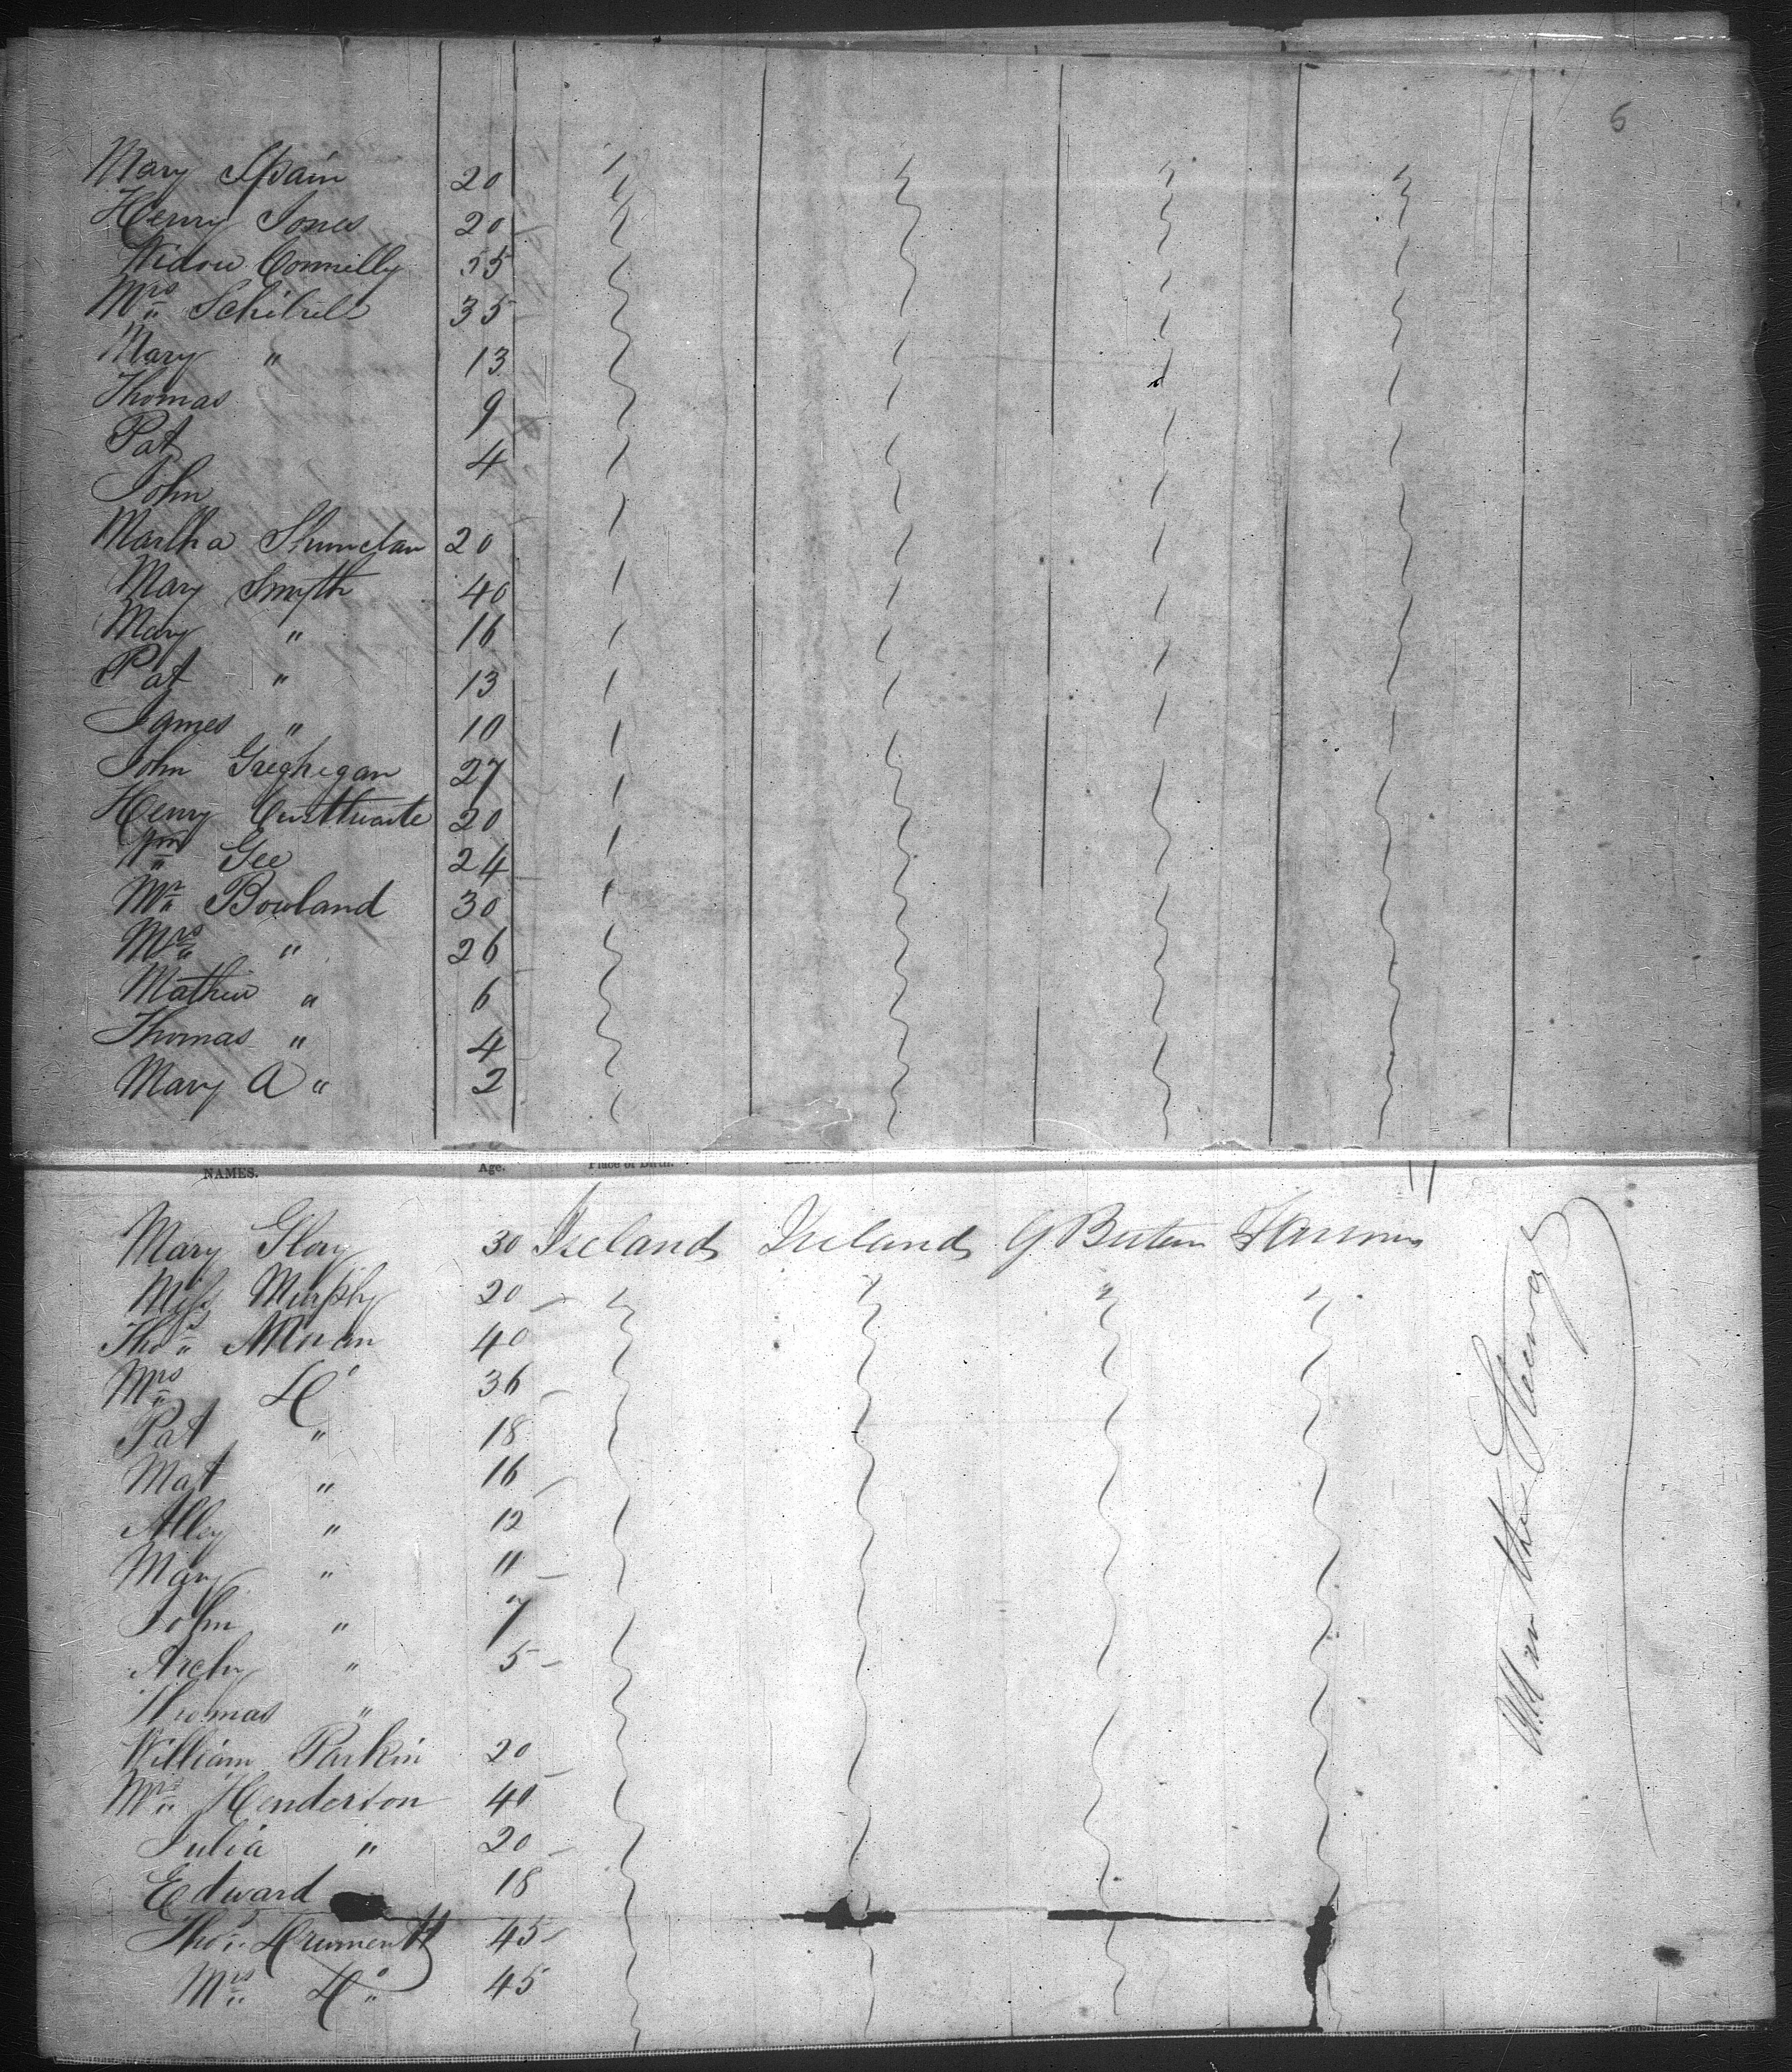 6
Mary Spain 20 " " " "
Henry Jones 20
Widow Connelly 55
Mrs 35
Mary " 13
Thomas 9
Pat 4
John
Martha 20
Mary Smyth 40
Mary " 16
Pat " 13
James " 10
John Greghegan 27
Henry 20
Wm Gee 24
Mr Bowland 30
Mrs " 26
Mathew " 6
Thomas " 4
Mary A " 2
NAMES. Age. Place of Birth.
Mary Glory 30 Ireland Ireland G Britain
Miss Murphy 20 " " " "
Thos Moran 40
Mrs Do 36
Pat " 18
Mat " 16
Alley " 12
Mary " 11
John " 7
Archy " 5
Thomas "
William Parkin 20
Mrs Henderson 40
Julia " 20
Edward 18
Thos 45
Mrs Do 45